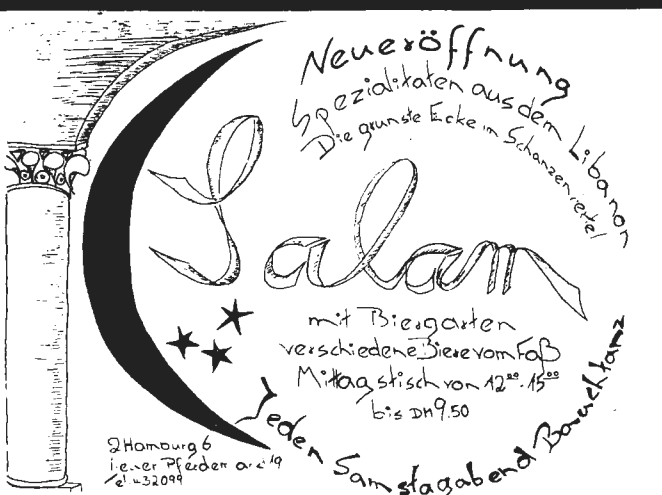 Neueröffnung
Spezialitäten aus dem Libanon
Die grünste Ecke im Schanzenviertel
Salam
mit Biergarten
verschiedene Biere vom Faß
Mittagstisch von 12⁰⁰-15⁰⁰
bis DM 9.50
Jeden Samstagabend Bauchtanz
2 Hamburg 6
Tel. 432099